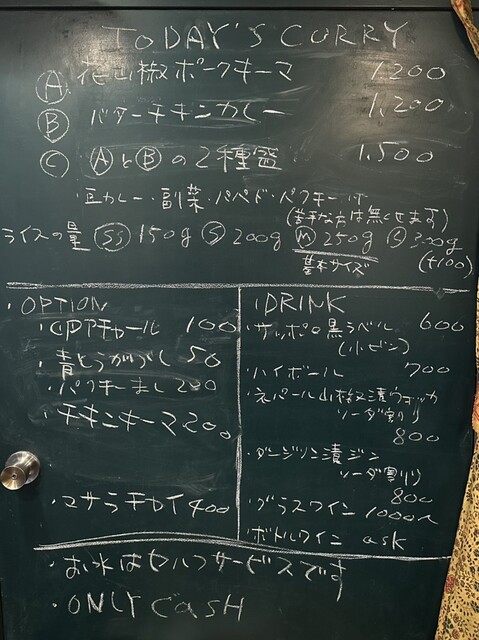 TODAY'S CURRY
Ⓐ 花山椒ポークキーマ 1,200
Ⓑ バターチキンカレー 1,200
Ⓒ ⒶとⒷの2種盛 1,500
・豆カレー・副菜・パパド・パクチー付
(苦手な方は無くせます)
ライスの量 SS 150g S 200g M 250g L 300g
基本サイズ (+100)
・OPTION
・アチャール 100
・青とうがらし 50
・パクチーまし 200
・チキンキーマ 200
・マサラチャイ 400
・DRINK
・サッポロ黒ラベル 600
(小ビン)
・ハイボール 700
・ネパール山椒漬ウォッカ
ソーダ割り
800
・ダージリン漬ジン
ソーダ割り
800
・グラスワイン 1000〜
・ボトルワイン ask
・お水はセルフサービスです
・ONLY CASH